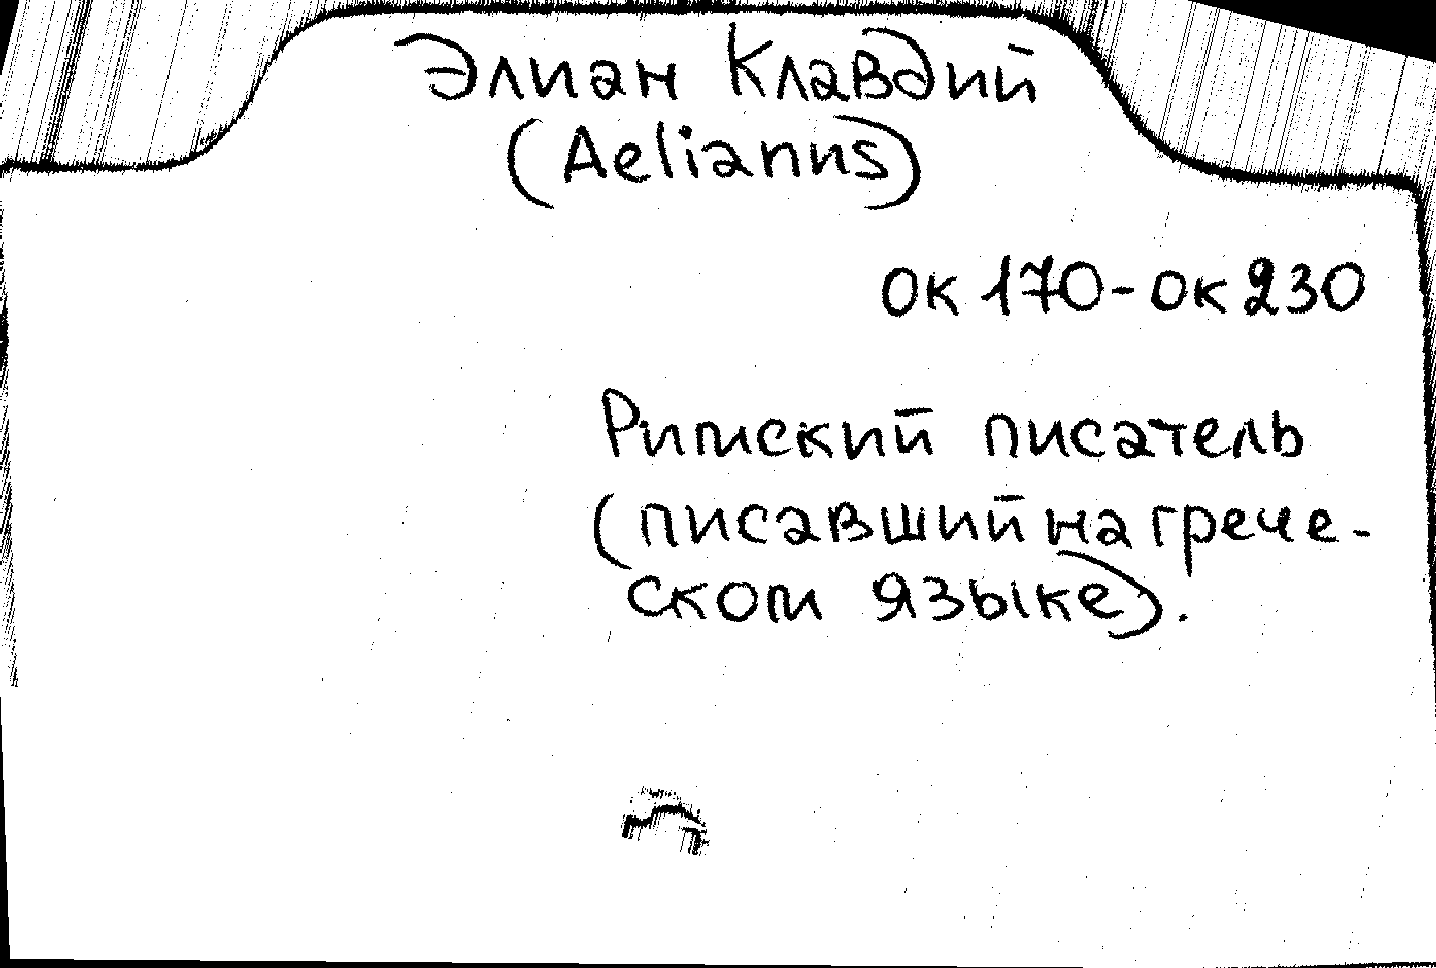 Элиан Клавдий
(Aelianus)
ок 170-ок 230
Римский писатель
(писавший на грече-
ском языке).